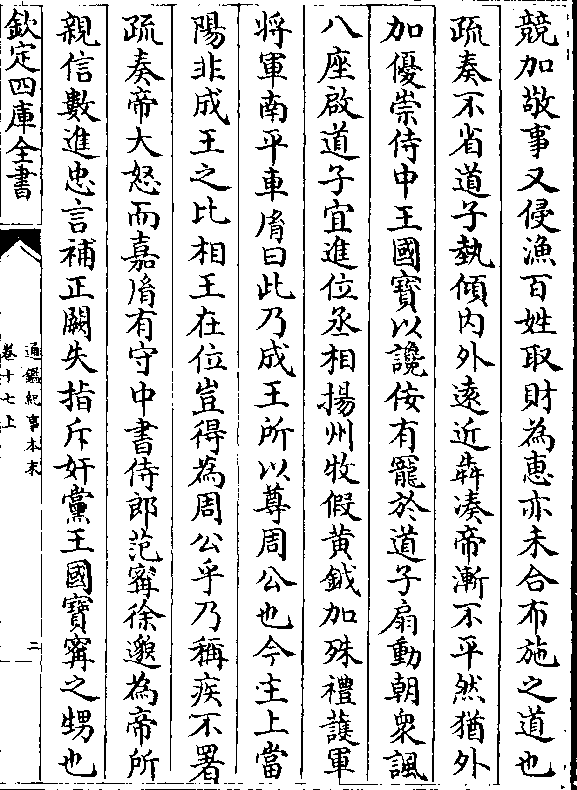 競加敬事又侵漁百姓取財為惠亦未合布施之道也
疏奏不省道子勢傾内外遠近犇湊帝漸不平然猶外
加優崇侍中王國寳以讒佞有寵於道子扇動朝衆諷
八座啟道子宜進位丞相揚州牧假黄鉞加殊禮䕶軍
將軍南平車㣧曰此乃成王所以尊周公也今主上當
陽非成王之比相王在位豈得為周公乎乃稱疾不署
疏奏帝大怒而嘉㣧有守中書侍郎范寗徐邈為帝所
親信數進忠言補正闕失指斥奸黨王國寳寗之甥也
欽定四庫全書
通鑑紀事本末
卷十七上
二